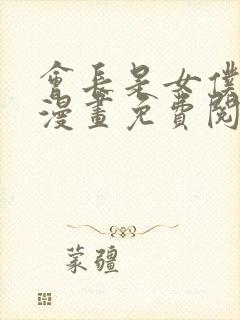 會長是女僕
漫畫免費閱
蒙疆